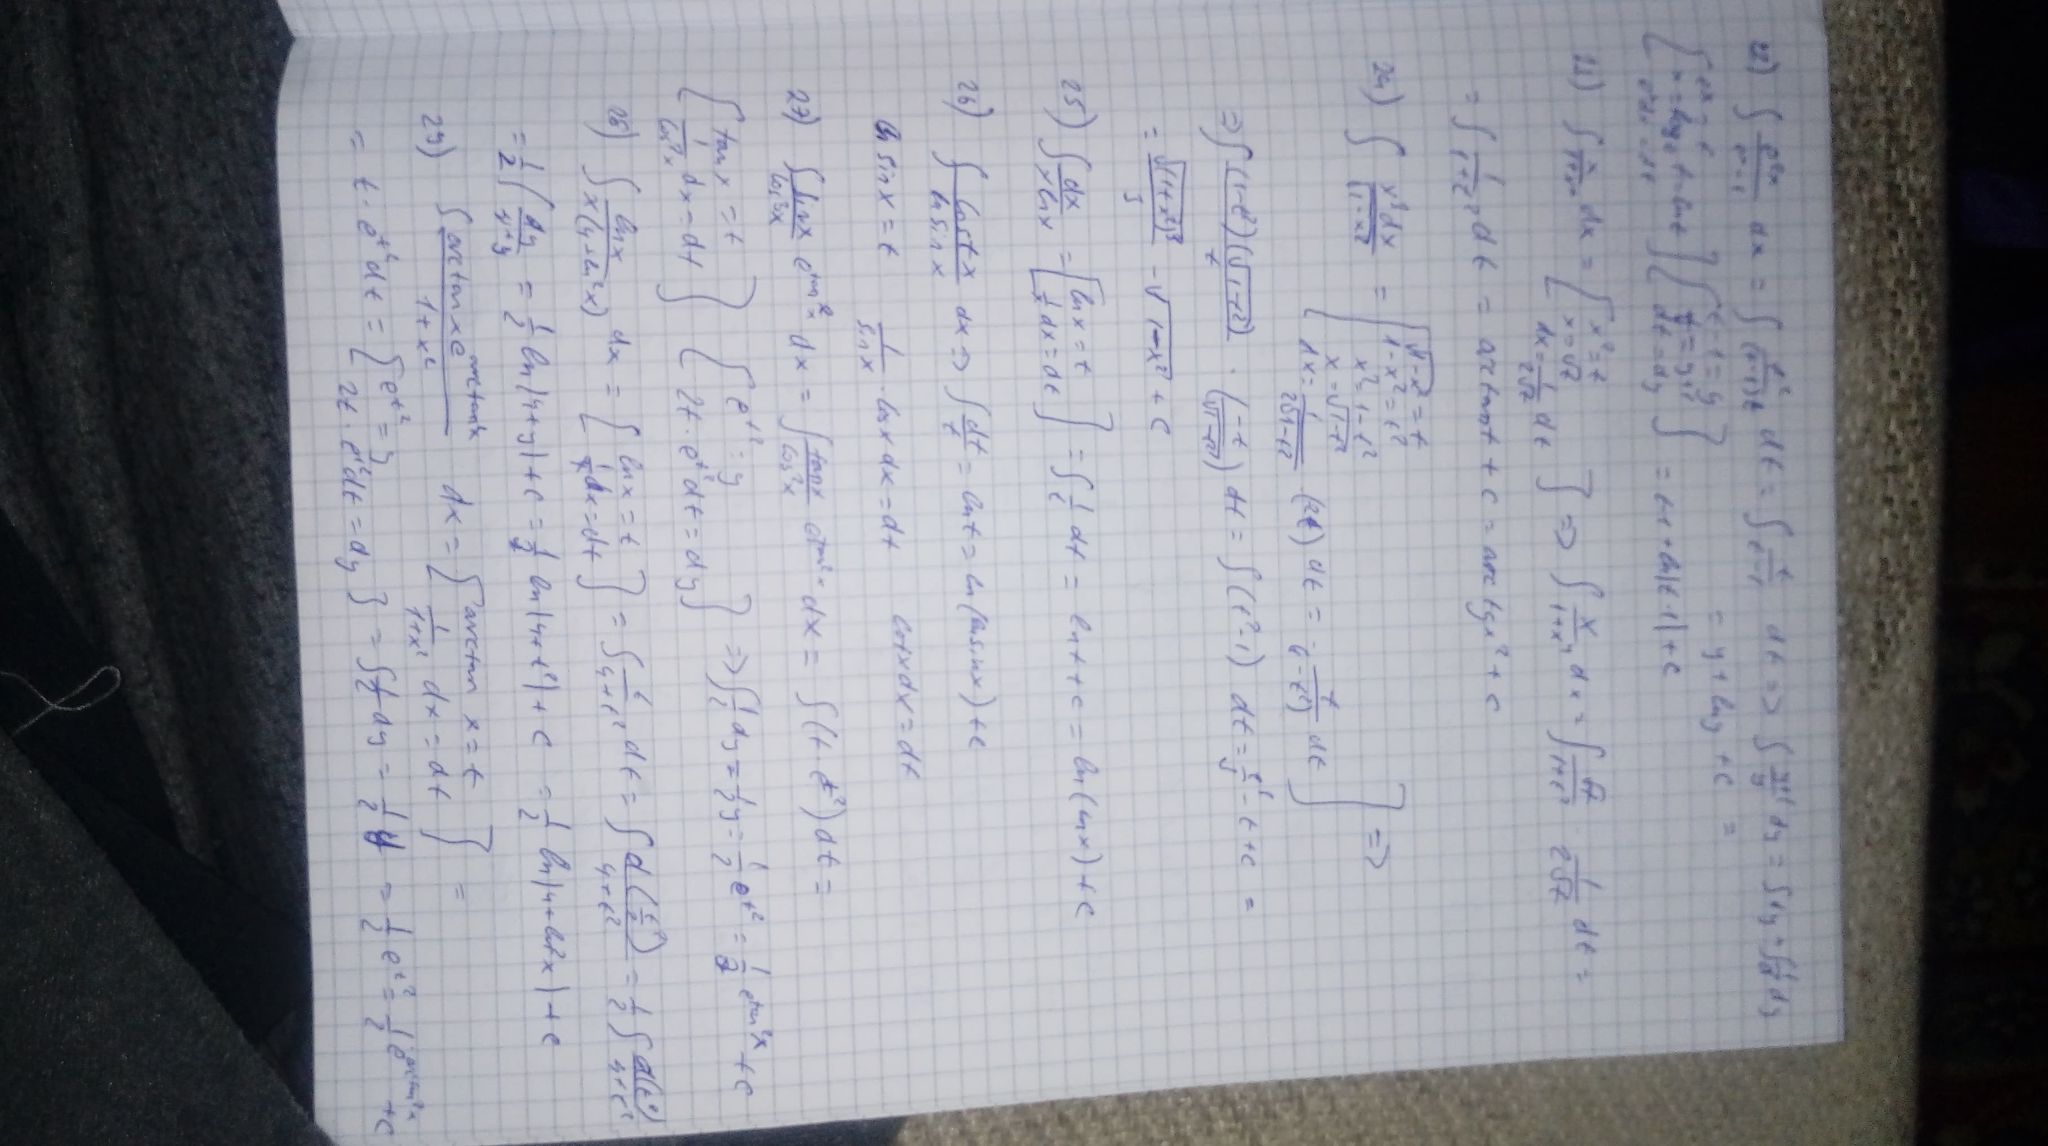 22) ∫ e^{2x}/(e^x-1) dx = ∫ t²/((t-1)t) dt = ∫ t/(t-1) dt => ∫ (y+1)/y dy = ∫ dy + ∫ 1/y dy
[e^x = t, x = ln t, e^x dx = dt] [t-1 = y, t = y+1, dt = dy] = y + ln y + c =
= e^x + ln|t-1| + c
dx = [x² = t, x = √t, dx = 1/(2√t) dt] => ∫ x/(1+x⁴) dx = ∫ √t/(1+t²) · 1/(2√t) dt =
= ∫ 1/(1+t²) dt = arctan t + c = arctg x² + c
24) ∫ x³dx/√(1-x²) = [√(1-x²) = t, 1-x² = t², x² = 1-t², x = √(1-t²), dx = 1/(2√(1-t²)) (2t) dt = -t/√(1-t²) dt] =>
=> ∫ (1-t²)(√(1-t²))/t · (-t/√(1-t²)) dt = ∫ (t²-1) dt = - t + c =
- √(1-x²) + c
25) ∫ dx/(x ln x) = [ln x = t, 1/x dx = dt] = ∫ 1/t dt = ln t + c = ln(ln x) + c
26) dx => ∫ dt/t = ln t = ln(ln sin x) + c
ln sin x = t 1/sin x · cos x dx = dt cot x dx = dt
27) ∫ sin x/cos³x e^{tan²x} dx = ∫ tan x/cos²x e^{tan²x} dx = ∫ (t · e^{t²}) dt =
[tan x = t, 1/cos²x dx = dt] [e^{t²} = y, 2t · e^{t²} dt = dy] => ∫ 1/2 dy = 1/2 y = 1/2 e^{t²} = 1/2 e^{tan²x} + c
28) ∫ ln x/(x(4+ln²x)) dx = [ln x = t, 1/x dx = dt] = ∫ t/(4+t²) dt = ∫ d(t²/2)/(4+t²) = 1/2 ∫ d(t²)/(4+t²)
= 1/2 ∫ dy/(4+y) = 1/2 ln|4+y| + c = 1/2 ln|4+t²| + c = 1/2 ln|4+ln²x| + c
29) ∫ arctan x e^{arctan²x}/(1+x²) dx = [arctan x = t, 1/(1+x²) dx = dt] =
= t · e^{t²} dt = [e^{t²} = y, 2t · e^{t²} dt = dy] = ∫ 1/2 dy = 1/2 y = 1/2 e^{t²} = 1/2 e^{arctan²x} + c